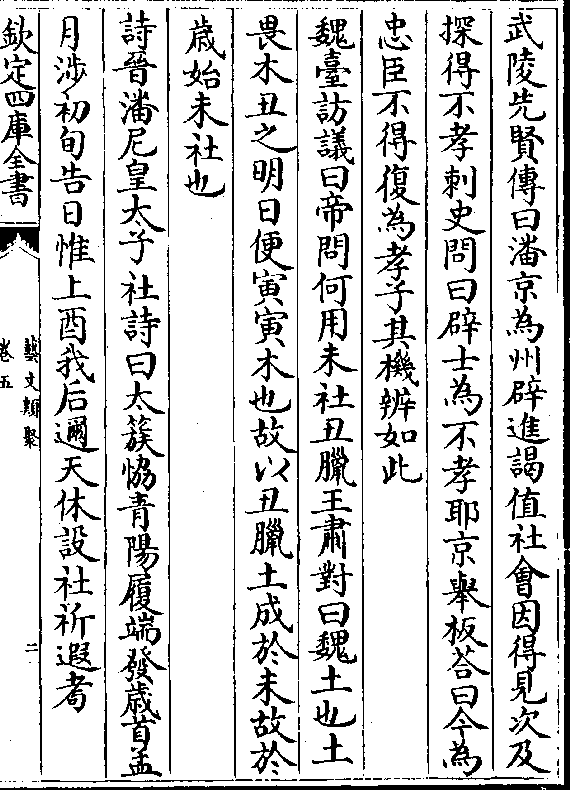 武陵先賢傳曰潘京為州辟進謁值社會因得見次及
探得不孝刺史問曰辟士為不孝耶京舉板荅曰今為
忠臣不得復為孝子其機辨如此
魏臺訪議曰帝問何用未社丑臘王肅對曰魏土也土
畏木丑之明日便寅寅木也故以丑臘土成於未故於
歳始未社也
詩晉潘尼皇太子社詩曰太簇恊青陽履端發歳首孟
月渉初旬告日惟上酉我后邇天休設社祈遐耉
欽定四庫全書
藝文類聚
卷五
二